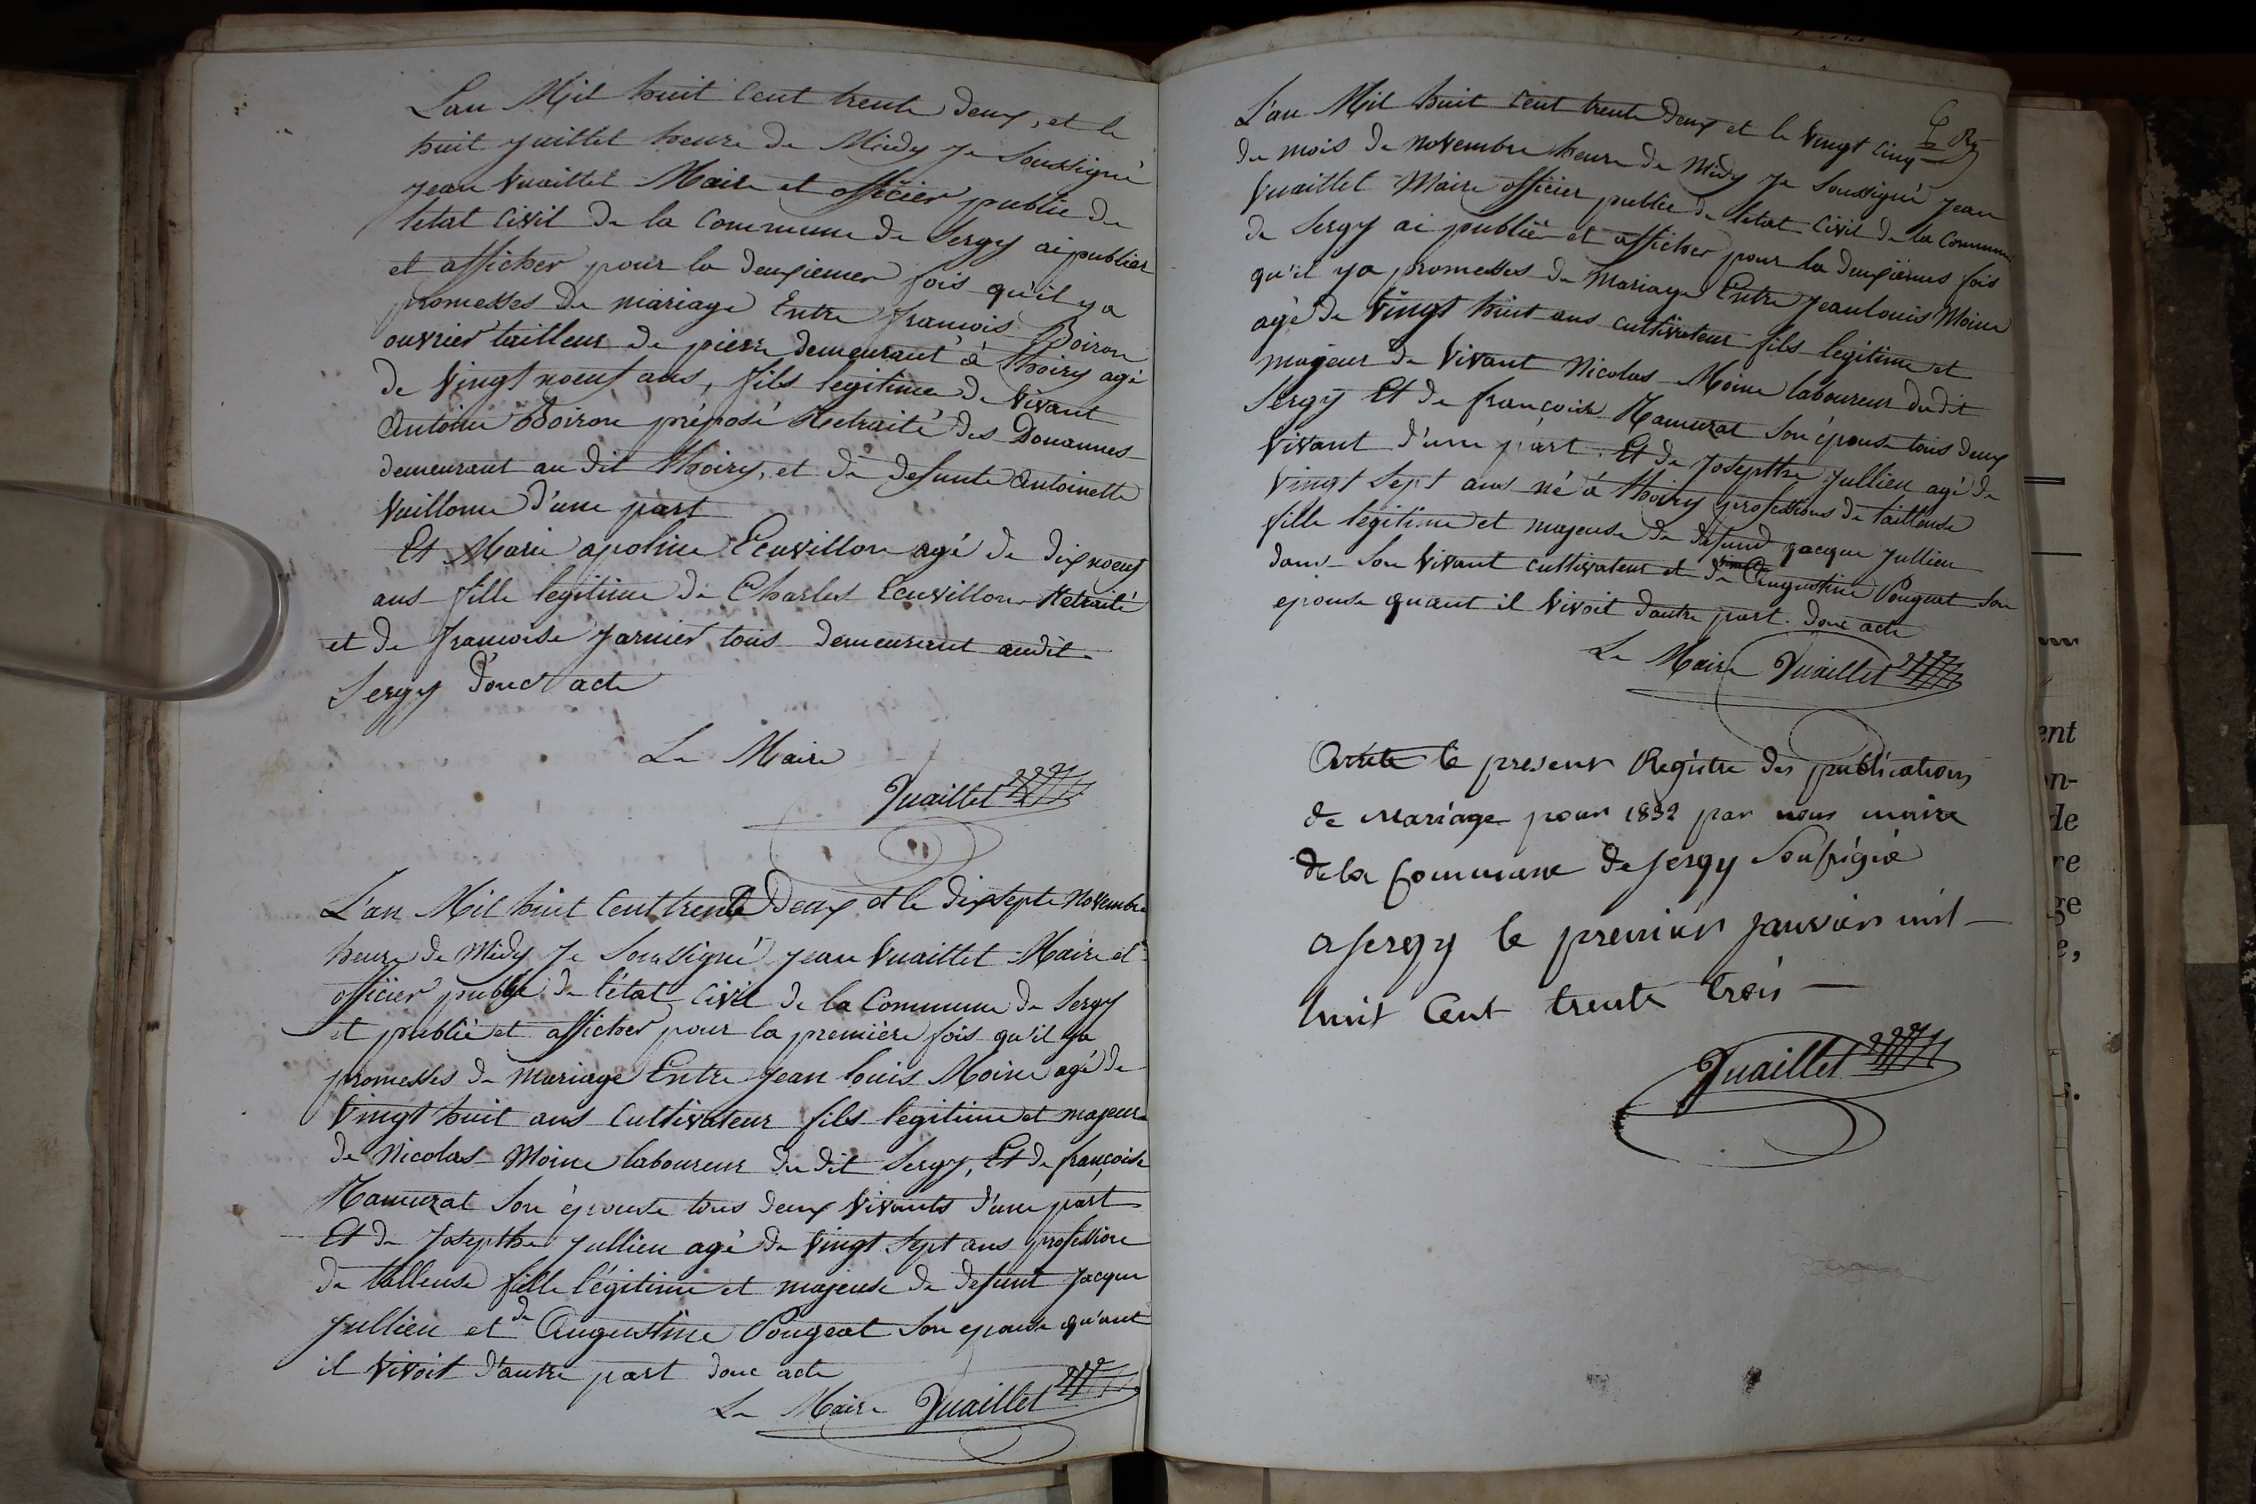 L'an Mil huit Cent trente deux, et le
huit juillet heure de Midy Je Soussigné
jean Vuaillet Maire et officier public de
l'etat Civil de la Commune de Sergy ai publier
et afficher pour la deuxiemes fois qu'il y a
promesses de mariage Entre francois Boiron
ouvrier tailleur de pierre demeurant à thoiry agé
de Vingt noeuf ans, fils legitime de Vivant
Antoine Boiron préposé Retraité des Douannes
demeurant au dit thoiry, et de defunte Antoinette
Vuillome d'une part
Et Marie apoline Ecuvillon agé de dix noeuf
ans fille legitime de Charles Ecuvillon Retraité
et de francoise jarnier tous demeurant audit
Sergy Donct acte
Le Maire
Vuaillet
L'an Mil huit Cent trente Deux et le dixsepte Novembre
heure de Midy Je Soussigné jean Vuaillet Maire et
officier public de l'etat Civil de la Commune de Sergy
et publié et afficher pour la première fois qu'il ya
promesses de Mariage Entre jean louis Moine agé de
Vingt huit ans Cultivateur fils legitime et majeure
de Nicolas Moine laboureur du dit Sergy, Et de françoise
Ramuzat Son épouse tous deux Vivants d'une part
Et de Josepthe Jullien agé de Vingt Sept ans profession
de talleuse fille légitime et majeuse de defunt Jacque
Jullien et de Augustine Pougeat Son epouse qu'ant
il Vivoit d'autre part donc acte
Le Maire Vuaillet
L'an Mil huit Cent trente deux et le Vingt Cinq
du mois de novembre heure de Midy Je Soussigné jean
Vuaillet Maire officier public de l'etat Civil de la Commune
de Sergy ai publiér et afficher pour la deuxièmes fois
qu'il ya promesses de Mariage Entre jeanlouis Moine
agé de Vingt huit ans cultivateur fils legitime et
majeur de Vivant Nicolas Moine laboureur dudit
Sergy Et de françoise Ramuzat Son épouse tous deux
Vivant d'une part. Et de Josepthe Jullien agé de
Vingt Sept ans né à thoiry professions de tailleuse
fille legitime et majeuse de defund jacque jullien
dans Son Vivant cultivateur et de Augustine Pougeat Son
epouse quant il Vivoit dautre part. donc acte
Le Maire Vuaillet
Arrété le present Régistre des publications
de Mariage pour 1832 par nous maire
de la Commune de Sergy Sousigné
a Sergy le premier janvier mil
huit Cent trente trois
Vuaillet
ent
on-
de
re
ge
e,
s.